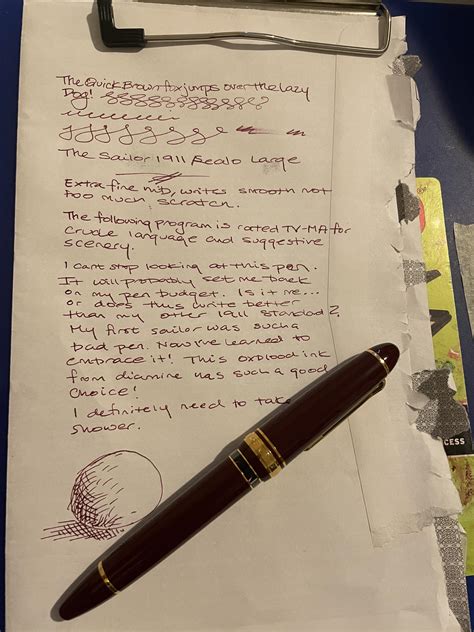 The Quick Brown fox jumps over the lazy
Dog!
The Sailor 1911 Realo Large
Extra fine nib, writes smooth not
too much scratch.
The following program is rated TV-MA for
crude language and suggestive
scenery.
I cant stop looking at this pen.
It will probably set me back
on my pen budget. Is it me...
or does this write better
than my other 1911 Standard?
My first sailor was such a
bad pen. Now I've learned to
embrace it! This oxblood ink
from diamine was such a good
choice!
I definitely need to take
shower.
CESS